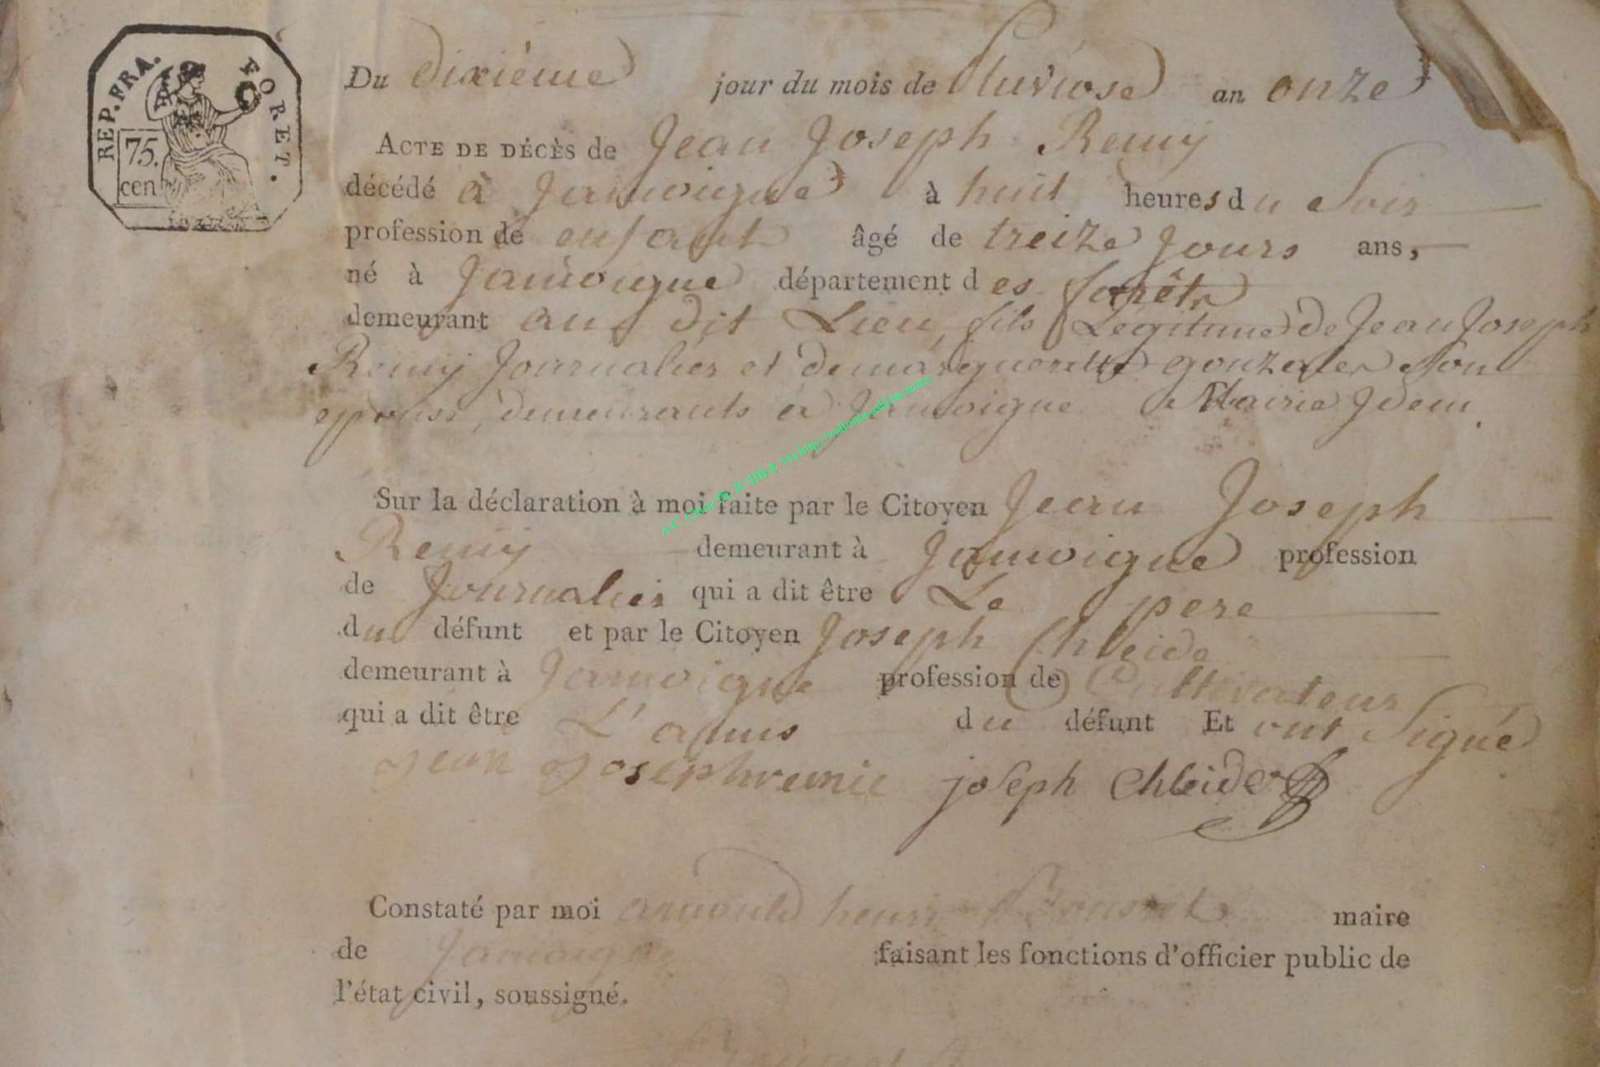 REP. FRA. FORET.
75. cen
Du dixiéme jour du mois de Pluviose an onze
ACTE DE DÉCÈS de Jean Joseph Remy
décédé à Jamoigne à huit heures du Soir
profession de enfant âgé de treize Jours ans,
né à Jamoigne département des forêts
demeurant au dit Lieu, fils Legitime de Jean Joseph
Remy Journalier et de marguerite gonzalez Son
epouse, demeurants a Jamoigne Mairie Idem.
Sur la déclaration à moi faite par le Citoyen Jean Joseph
Remy demeurant à Jamoigne profession
de Journalier qui a dit être Le pere
du défunt et par le Citoyen Joseph Chleide
demeurant à Jamoigne profession de Cultivateur
qui a dit être L'amis du défunt Et ont Signé
Jean Josephremie joseph Chleide
Constaté par moi arnould henri maire
de Jamoigne faisant les fonctions d'officier public de
l'état civil, soussigné.